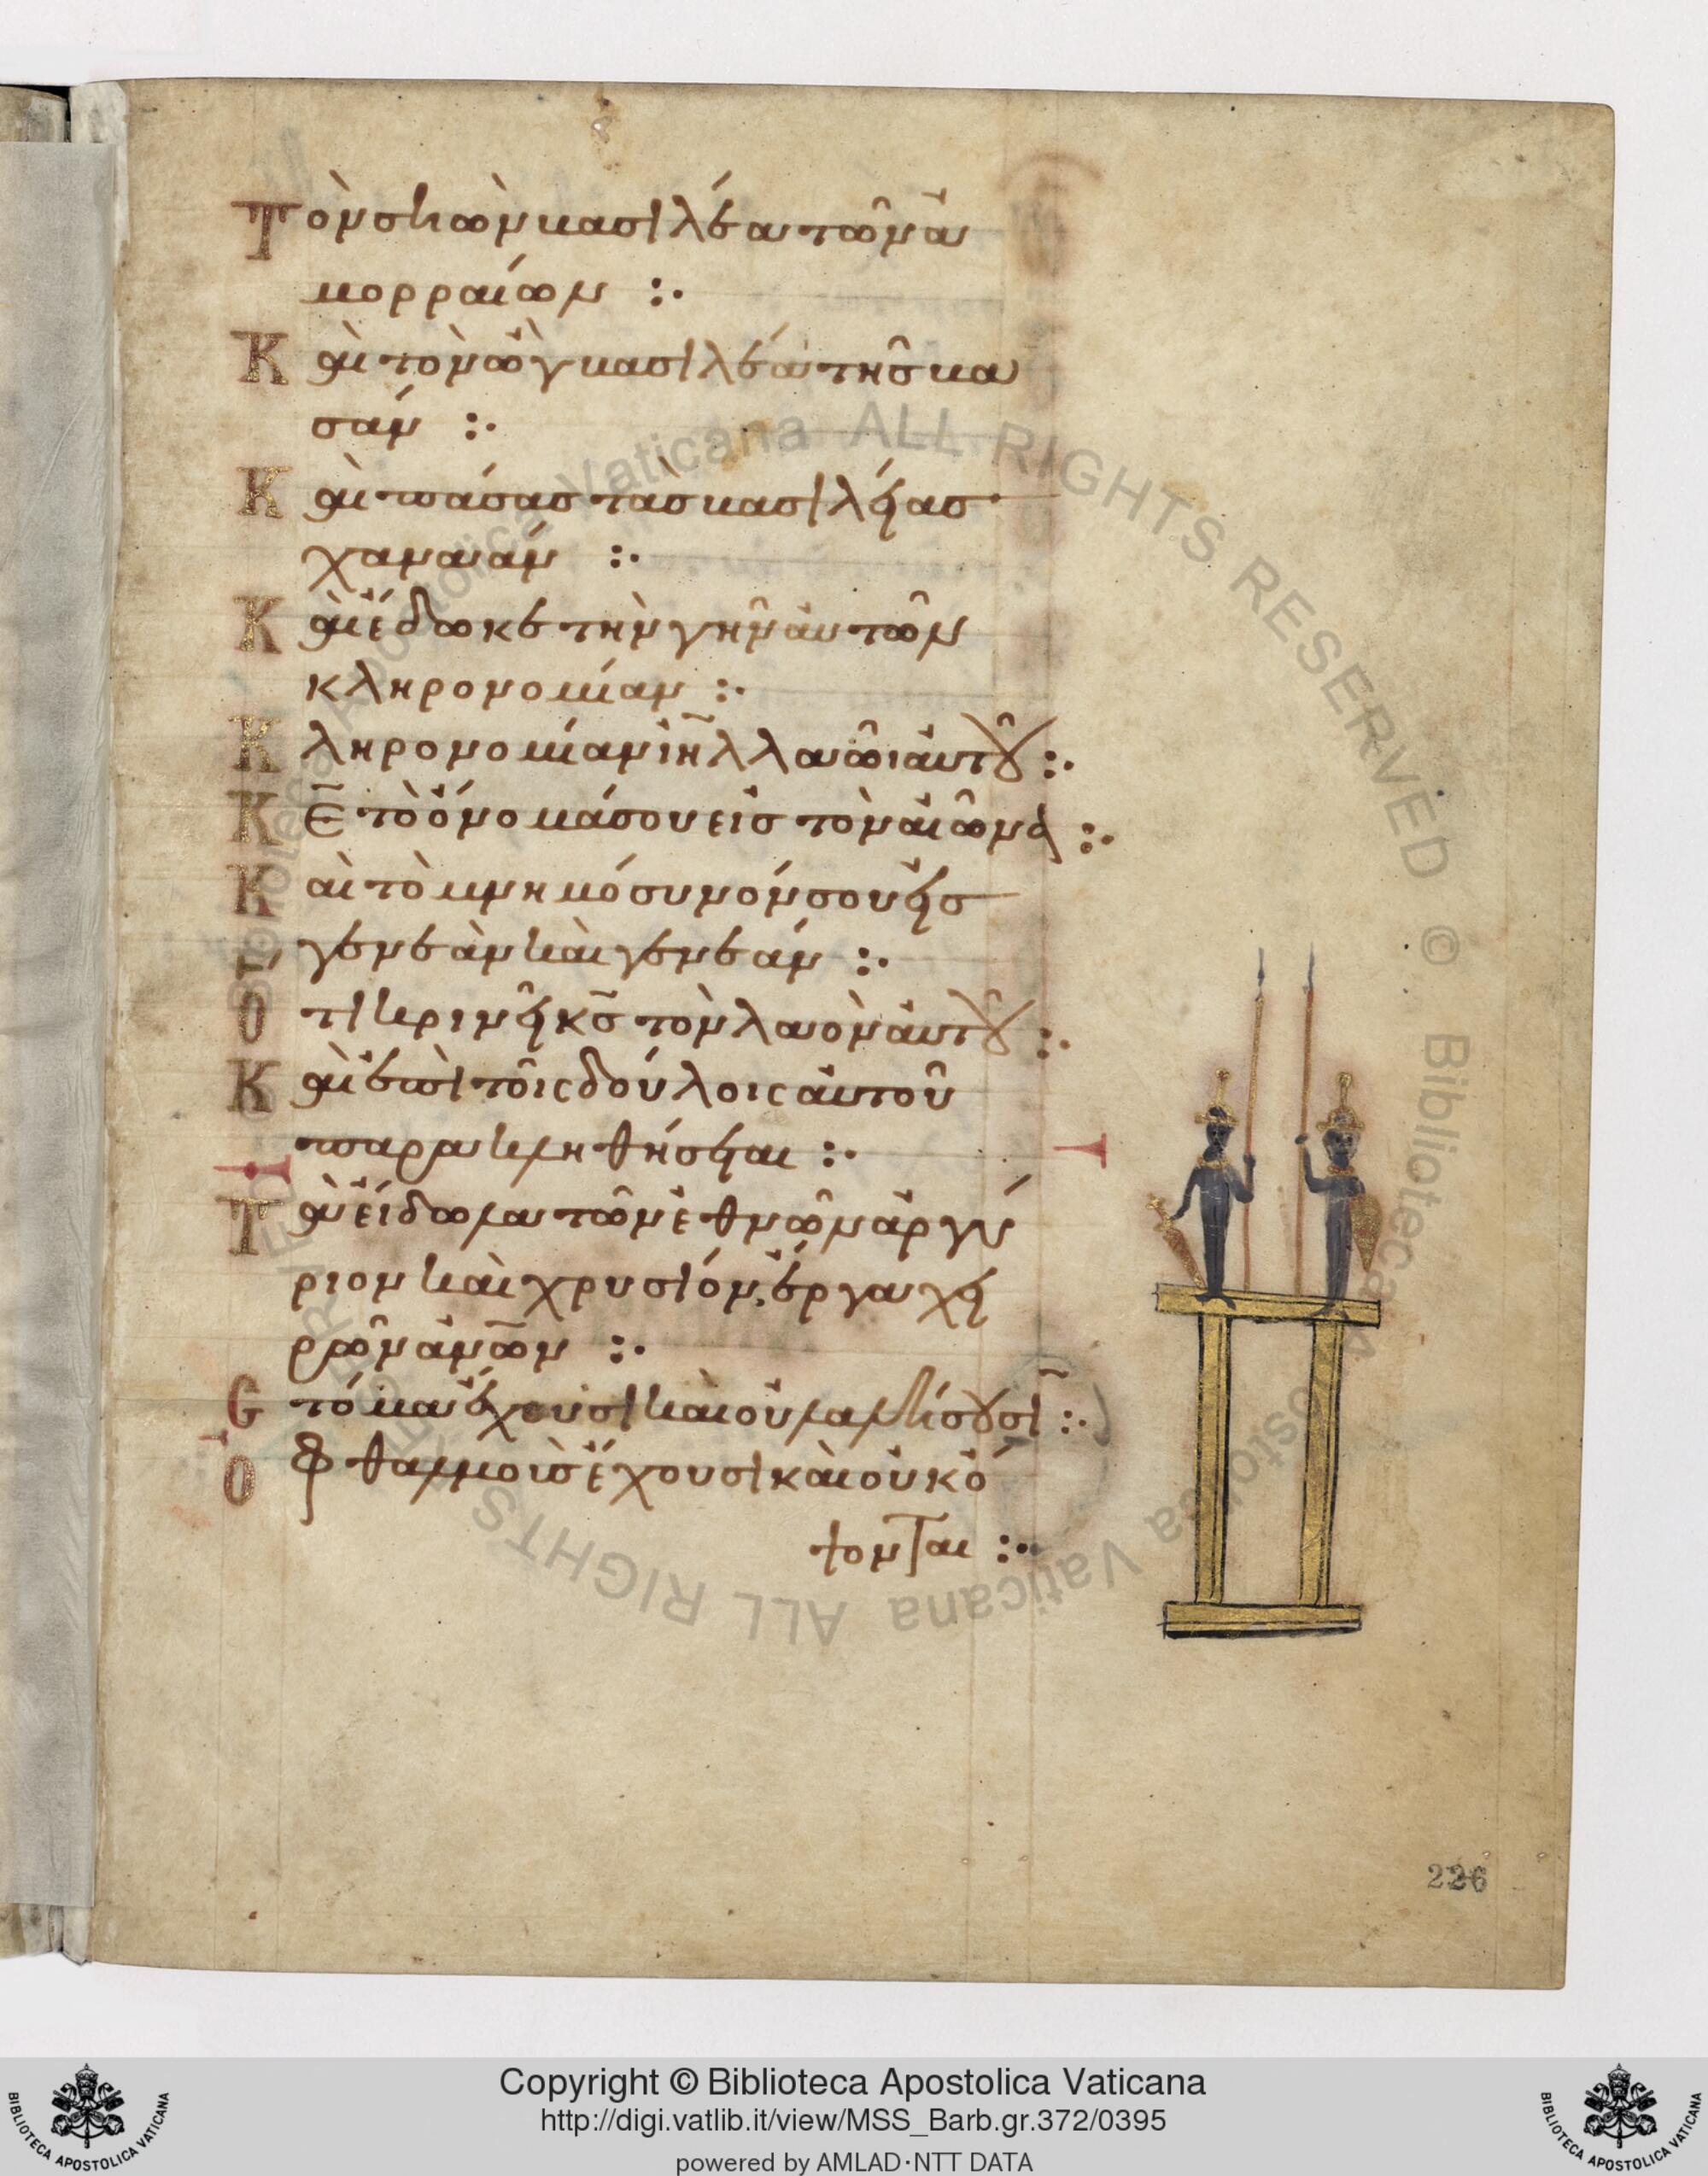 Τὸν σηὼν βασιλέα τῶν ἀ
μορραίων :·
Κ αὶ τὸν ὢγ βασιλέα τῆς βα
σάν :·
Κ αὶ πάσας τὰς βασιλείας
χαναάν :·
Κ αὶ ἔδωκε τὴν γῆν ἀυτῶν
κληρονομίαν :·
Κ ληρονομίαν ιη̅λ λαῶι ἀυτοῦ :·
Κ ε̅ τὸ ὄνομά σου εἰς τὸν αἰῶνα :·
Κ αὶ τὸ μνημόσυνόν σου εἰς
γενεὰν καὶ γενεάν :·
Ο τι κρινεῖ κ̅σ τὸν λαὸν ἀυτοῦ :·
Κ αὶ ἐπὶ τοῖς δούλοις ἀυτοῦ
παρακληθήσεται :·
Τ ὰ εἴδωλα τῶν ἐθνῶν ἀργύ
ριον καὶ χρυσίον, ἔργα χει
ρῶν ἀν̅ων :·
Ϲ τόμα ἔχουσι καὶ οὐ λαλήσουσι :·
Ο φθαλμοὺς ἔχουσι καὶ οὐκ ὄ
ψονται :·
226
Biblioteca Apostolica Vaticana ALL RIGHTS RESERVED © Biblioteca Apostolica Vaticana ALL RIGHTS
Copyright © Biblioteca Apostolica Vaticana
http://digi.vatlib.it/view/MSS_Barb.gr.372/0395
powered by AMLAD·NTT DATA
BIBLIOTECA APOSTOLICA VATICANA
BIBLIOTECA APOSTOLICA VATICANA